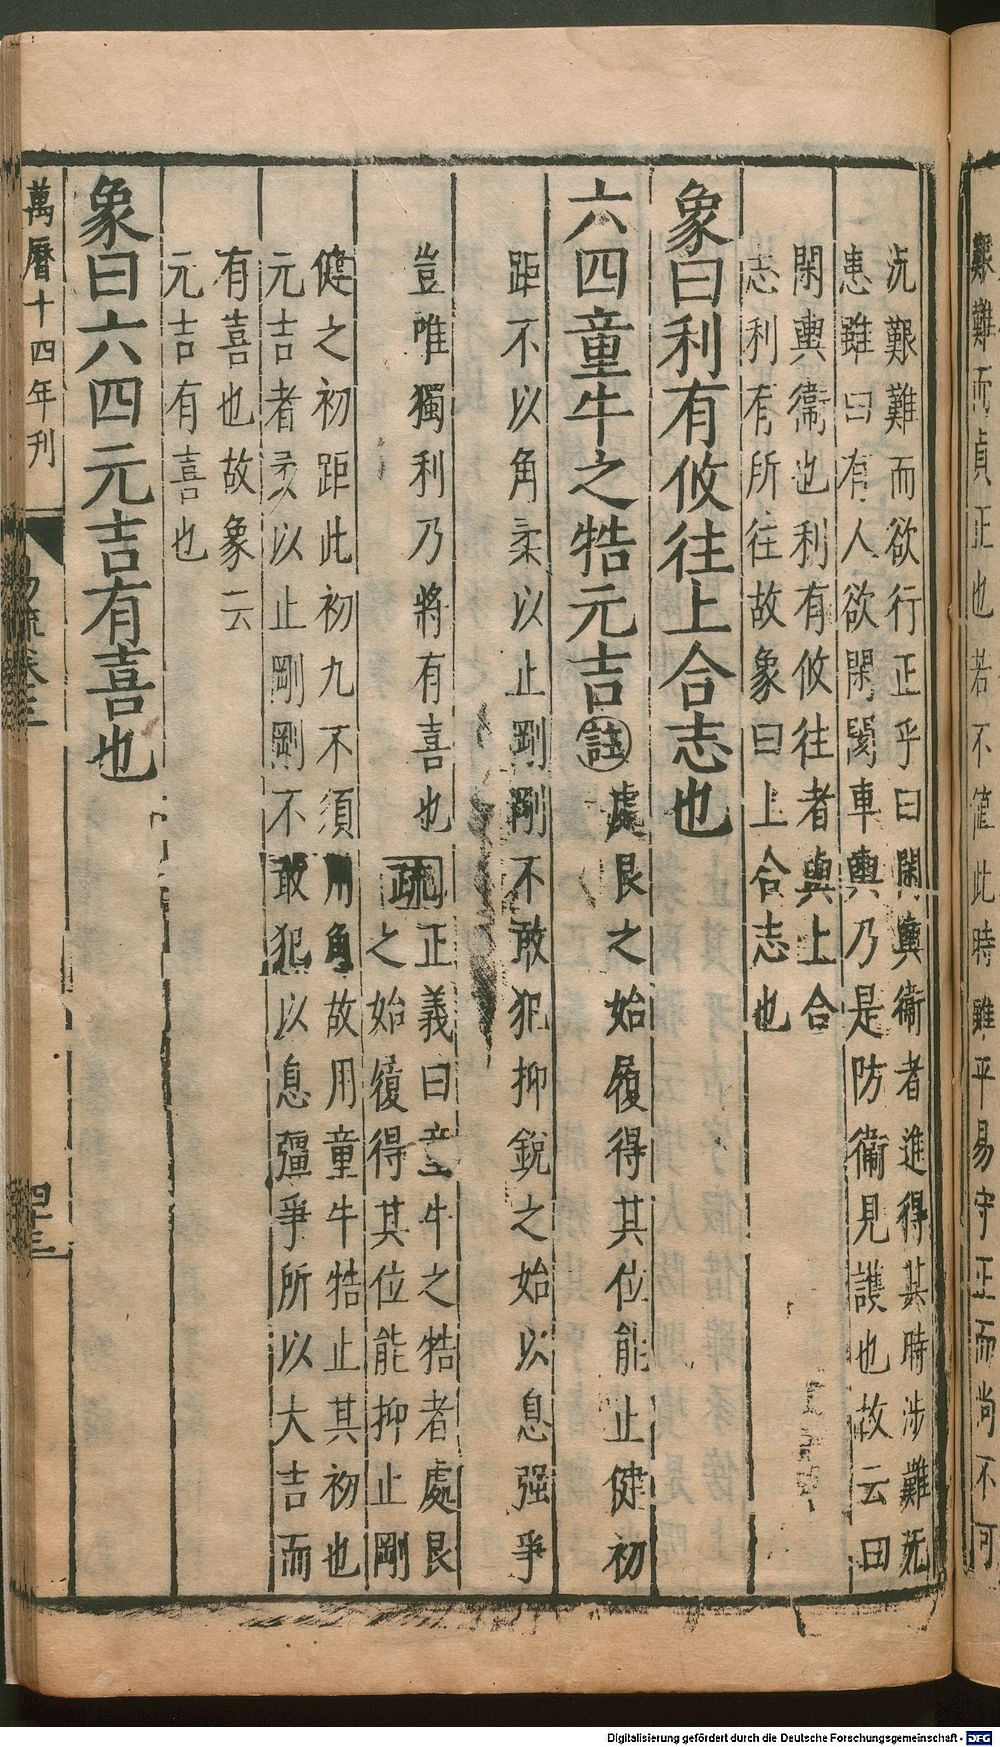 艱難而貞正也若不値此時雖平易守正而尚不可
況艱難而欲行正乎曰閑輿衛者進得其時涉難无
患雖曰有人欲閑閡車輿乃是防衛見護也故云曰
閑輿衛也利有攸往者與上合
志利有所往故象曰上合志也
象曰利有攸往上合志也
六四童牛之牿元吉 註 處艮之始履得其位能止健初
距不以角柔以止剛剛不敢犯抑銳之始以息强爭
豈唯獨利乃將有喜也 疏 正義曰童牛之牿者處艮
之始履得其位能抑止剛
健之初距此初九不須用角故用童牛牿止其初也
元吉者柔以止剛剛不敢犯以息彊爭所以大吉而
有喜也故象云
元吉有喜也
象曰六四元吉有喜也
萬曆十四年刊 易疏卷三 四十三
Digitalisierung gefördert durch die Deutsche Forschungsgemeinschaft - DFG